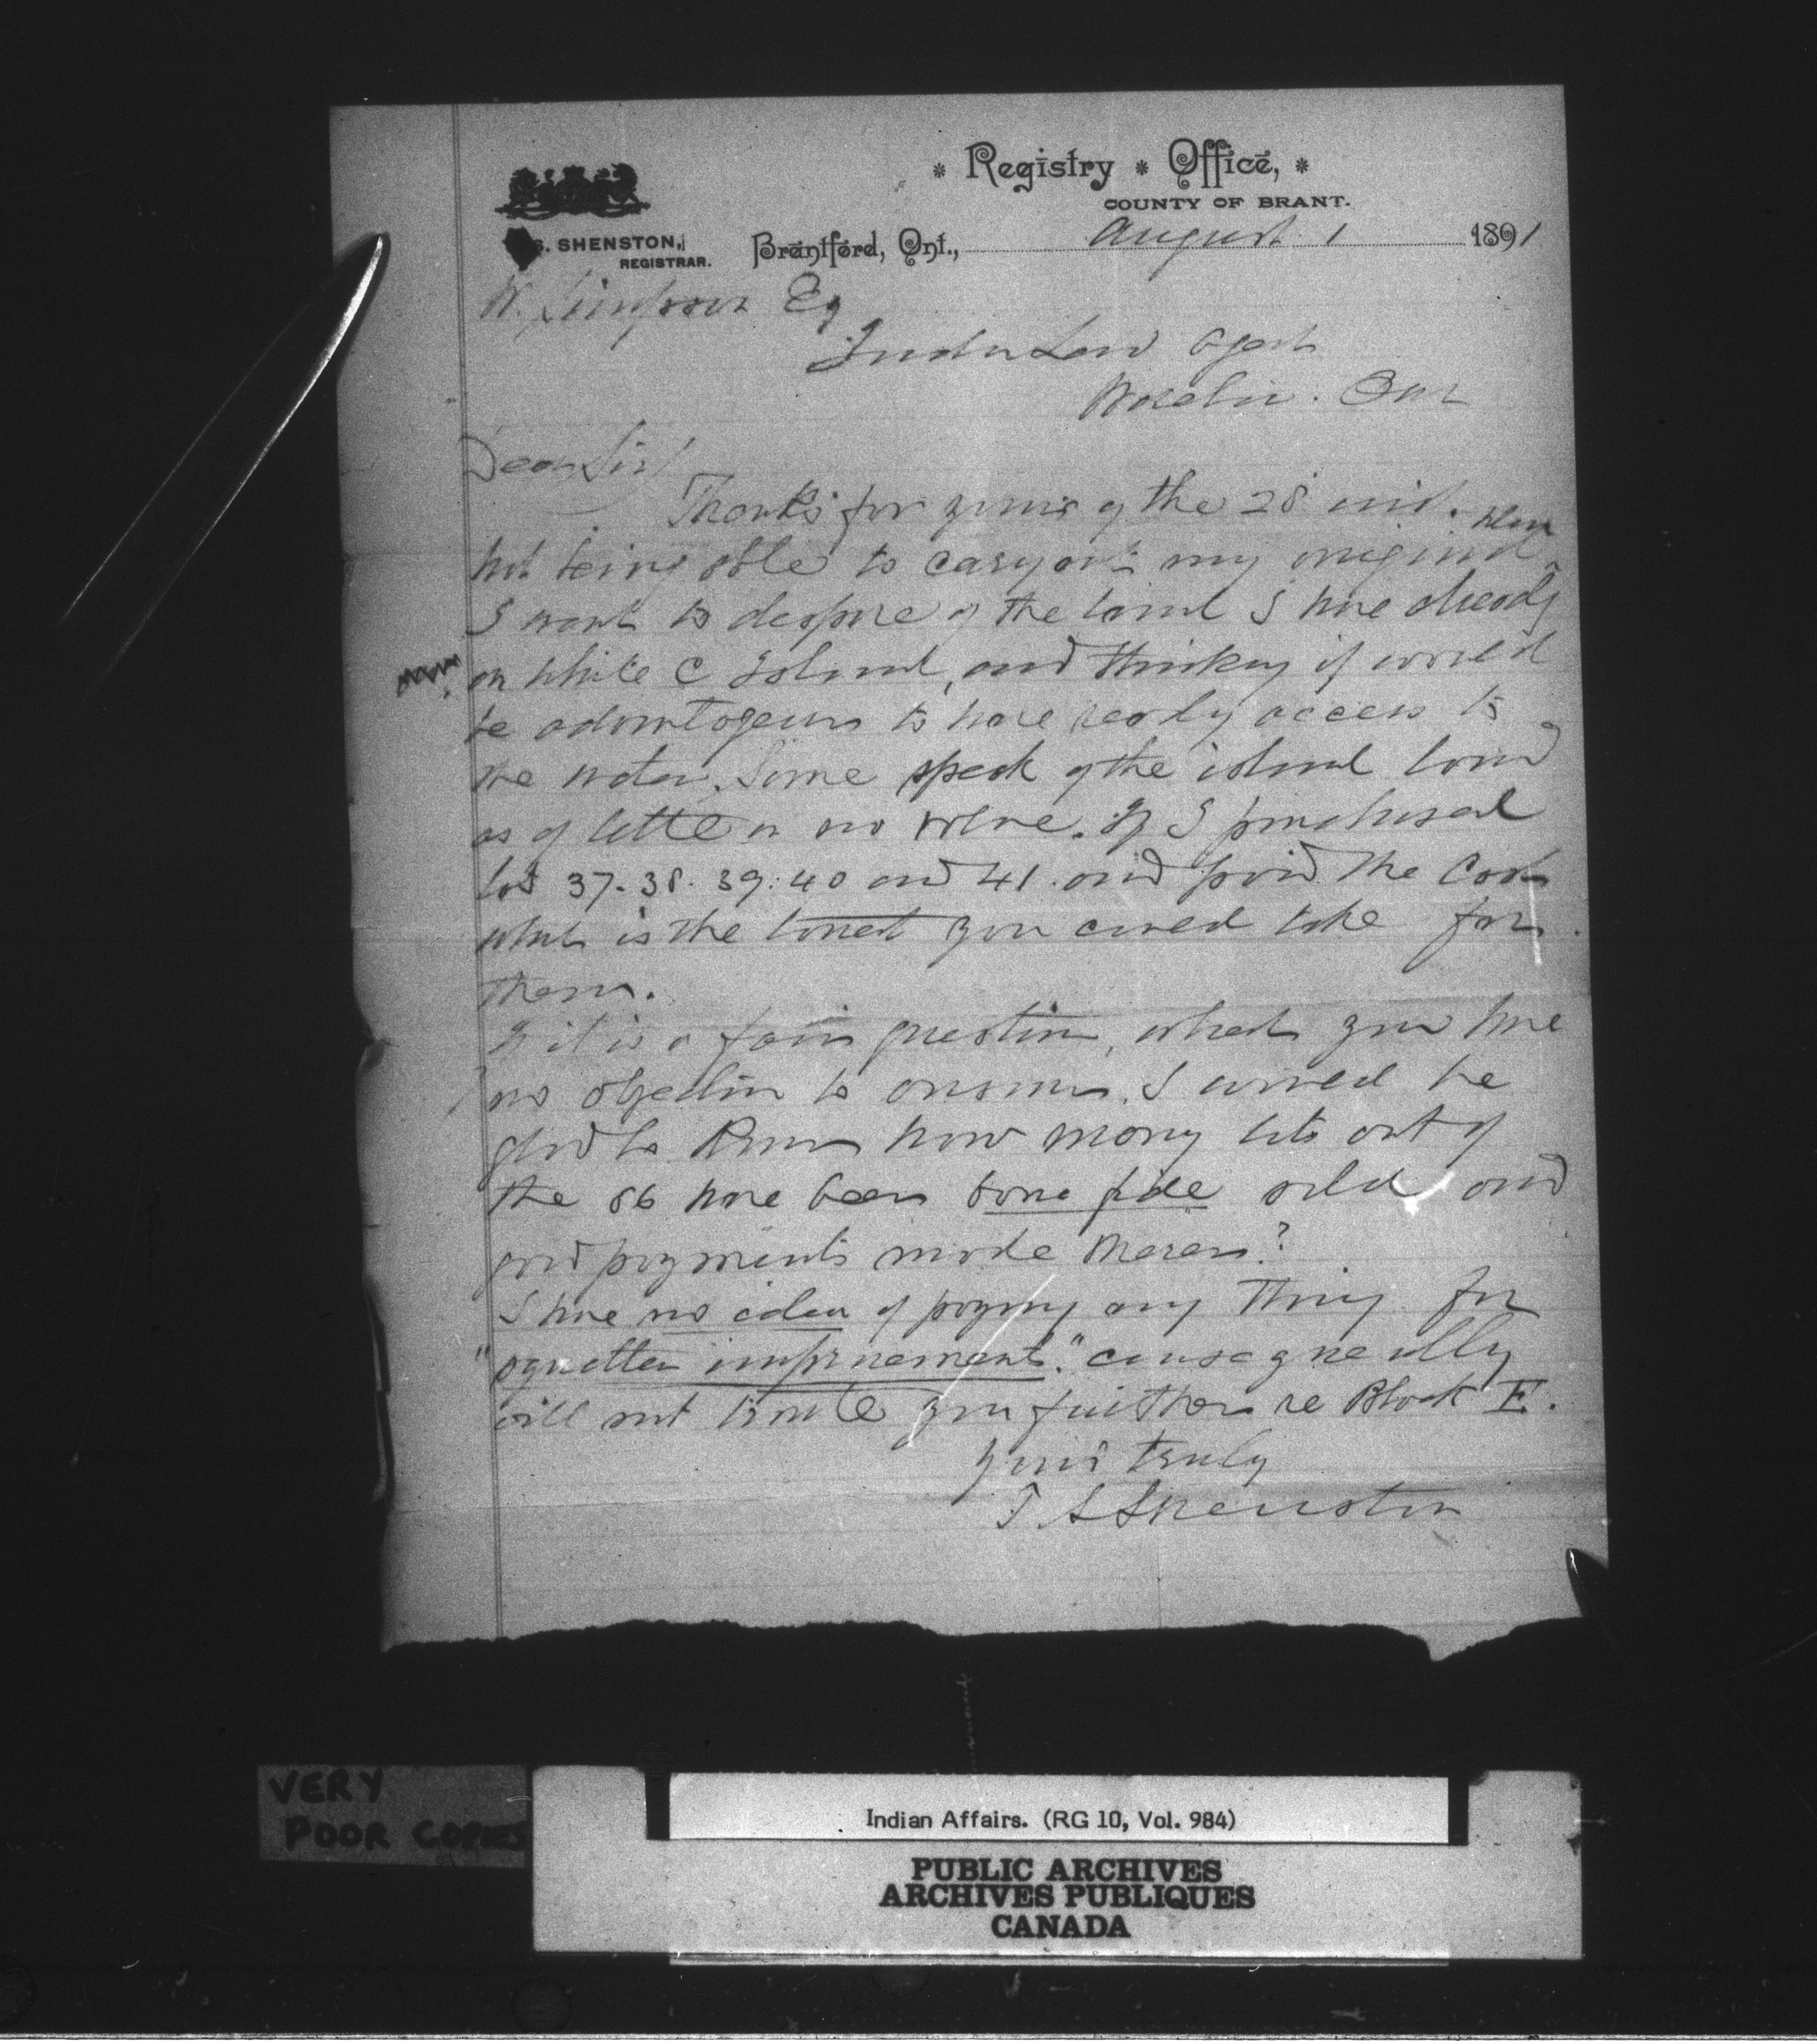 * Registry * Office, *
COUNTY OF BRANT.
S. SHENSTON,
REGISTRAR.
Brantford, Ont., August 1 1891
W. Simpson Esq
Indian Land Agent
Wiarton. Ont
Dear Sir/
Thanks for yours of the 28 inst.
Not being able to carry out my original plan
I want to dispose of the land I have already
on White C Island, and thinking it would
be advantageous to have ready access to
the water. Some speak of the island land
as of little or no value. If I purchased
lots 37. 38. 39. 40 and 41 and paid the Cash
what is the lowest you could take for
them.
If it is a fair question, what you have
no objection to answer. I would be
glad to know how many lots out of
the 86 have been bona fide sold and
payments made thereon?
I have no idea of paying any thing for
"squatter improvements". consequently
will not trouble you further re Block E.
Yours truly
T S Shenston
VERY
POOR COPIES
Indian Affairs. (RG 10, Vol. 984)
PUBLIC ARCHIVES
ARCHIVES PUBLIQUES
CANADA